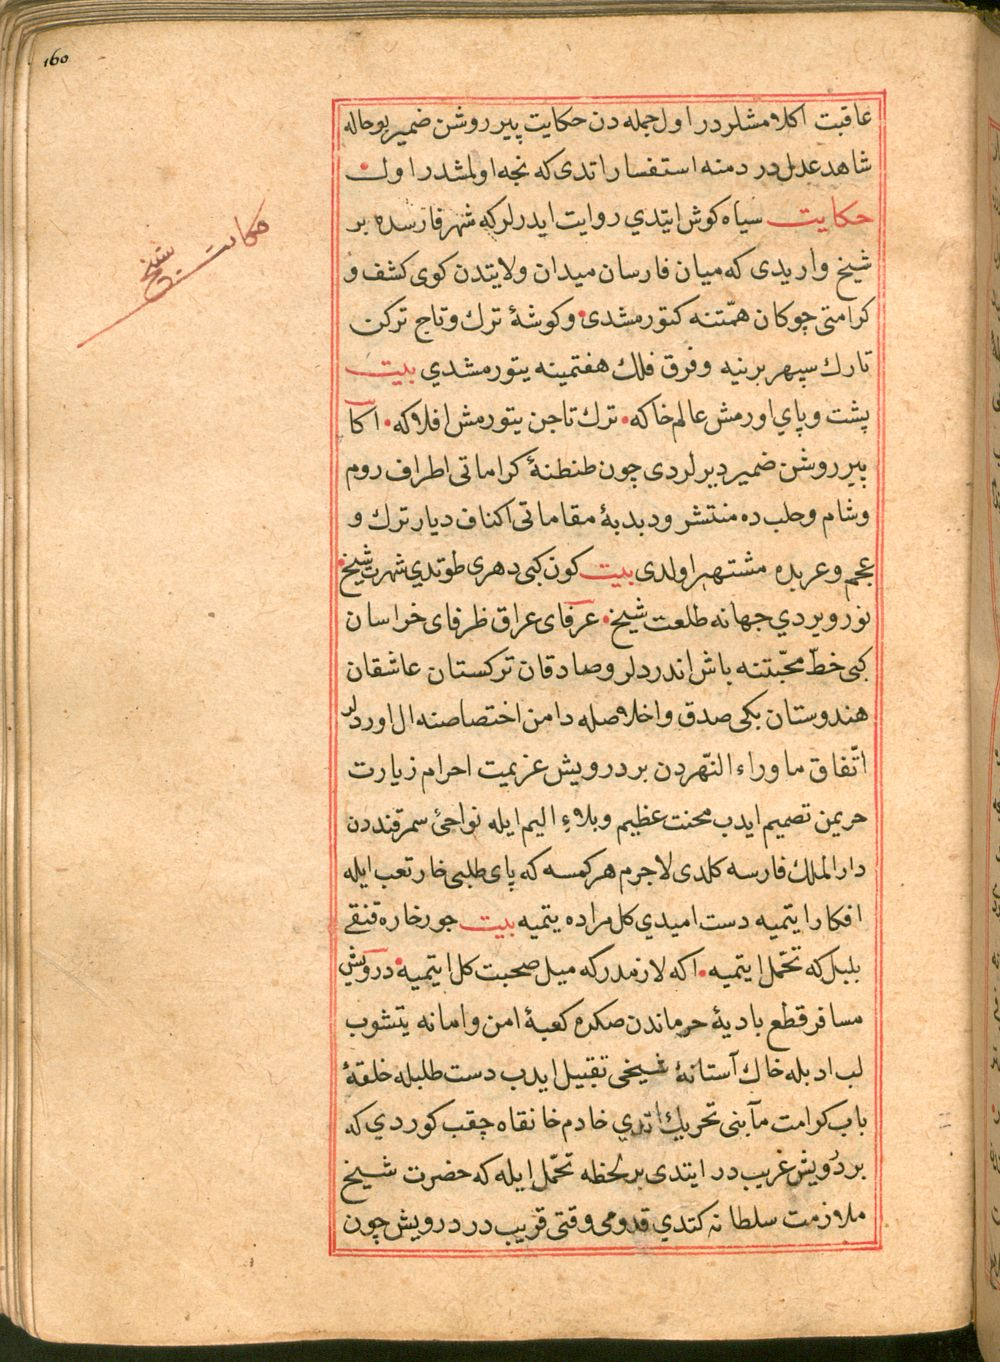 160
حكايت شيخ
عاقبت اكلامشلردر اول جمله دن حكايت پير روشن ضمير بو حاله
شاهد عدل در دمنه استفسار اتدى كه نجه اولمشدر اول
حكايت سياه كوش ايتدي روايت ايدرلر كه شهر فارسده بر
شيخ وار يدى كه ميان فارسان ميدان ولايتدن كوى كشف و
كرامتى چوكان همّتنه كتورمشدى وكوشهٔ ترك وتاج تركن
تارك سپهر برينه وفرق فلك هفتمينه يتورمشدي بيت
پشت وپاي اورمش عالم خاكه ترك تاجن يتورمش افلاكه اكا
پير روشن ضمير ديرلردى چون طنطنهٔ كراماتى اطراف روم
وشام وحلب ده منتشر ودبدبهٔ مقاماتى اكناف ديار ترك و
عجم وعربده مشتهر اولدى بيت كون كبى دهرى طوتدي شهرت شيخ
نور ويردي جهانه طلعت شيخ عرفاى عراق ظرفاى خراسان
كبى خطّ محبّتنه باش اندردلر وصادقان تركستان عاشقان
هندوستان بكى صدق واخلاصله دامن اختصاصنه ال اوردلر
اتّفاق ماوراء النّهردن بر درويش عزيمت احرام زيارت
حرمين تصميم ايدب محنت عظيم وبلاءِ اليم ايله نواحئ سمرقنددن
دار الملك فارسه كلدى لاجرم هر كمسه كه پاى طلبى خار تعب ايله
افكار ايتميه دست اميدي كل مراده يتميه بيت جور خاره قنقے
بلبل كه تحمّل ايتميه اكه لازمدر كه ميل صحبت كل ايتميه درويش
مسافر قطع باديهٔ حرماندن صكره كعبهٔ امن وامانه يتشوب
لب ادبله خاك آستانهٔ شيخى تقبيل ايدب دست طلبله خلقهٔ
باب كرامت مآبنى تحريك اتدي خادم خانقاه چقب كوردي كه
بر درويش غريب در ايتدى بر لحظه تحمّل ايله كه حضرت شيخ
ملازمت سلطانه كتدي قدومى وقتى قريب در درويش چون